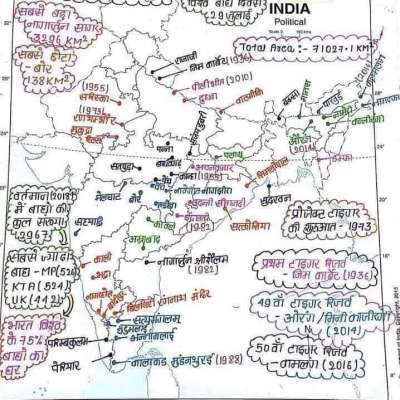 सबसे बड़ा
नागार्जुन सागर
3296 KM²
सबसे छोटा
बोर
138 KM²
विश्व बाघ दिवस
29 जुलाई
INDIA
Political
Total Area:- 71027.1 KM²
राजाजी
जिम कार्बेट (1936)
पीलीभीत (2010)
दुधवा
वाल्मीकि
(1955)
सरिस्का
(1973)
रणथम्भौर
मुकुंदरा
बक्सा
मानस
नामेरी
काजीरंगा
नामदफा
ओरंग
(2014)
डम्पा
पन्ना
सतपुड़ा
बांधवगढ़
पेंच
कान्हा
अचानकमार
पलामू
सिमलीपाल
सुंदरवन
मेलघाट
बोर
नागजीरा
इन्द्रावती
(1982)
सतकोसिया
सह्याद्रि
कवल
अमराबाद
वर्तमान (2018)
में बाघों की
कुल संख्या
(2967)
सबसे ज्यादा
बाघ - MP (526)
KTA (524)
UK (442)
भारत विश्व
के 75%
बाघों का
घर
काली
भद्रा
नागरहोल
नागार्जुन श्रीशैलम
(1982)
बिलीगिरी रंगनाथ मंदिर
सत्यमंगलम
मुदुमलाई
अन्नामलाई
परम्बिकुलम
पेरियार
कालाकड़ मुंडनथुराई (1988)
प्रोजेक्ट टाइगर
की शुरुआत - 1973
प्रथम टाइगर रिजर्व
- जिम कार्बेट (1936)
49वां टाइगर रिजर्व
- ओरंग / मिनी काजीरंगा
(2014)
50वां टाइगर रिजर्व
- कामलांग (2016)